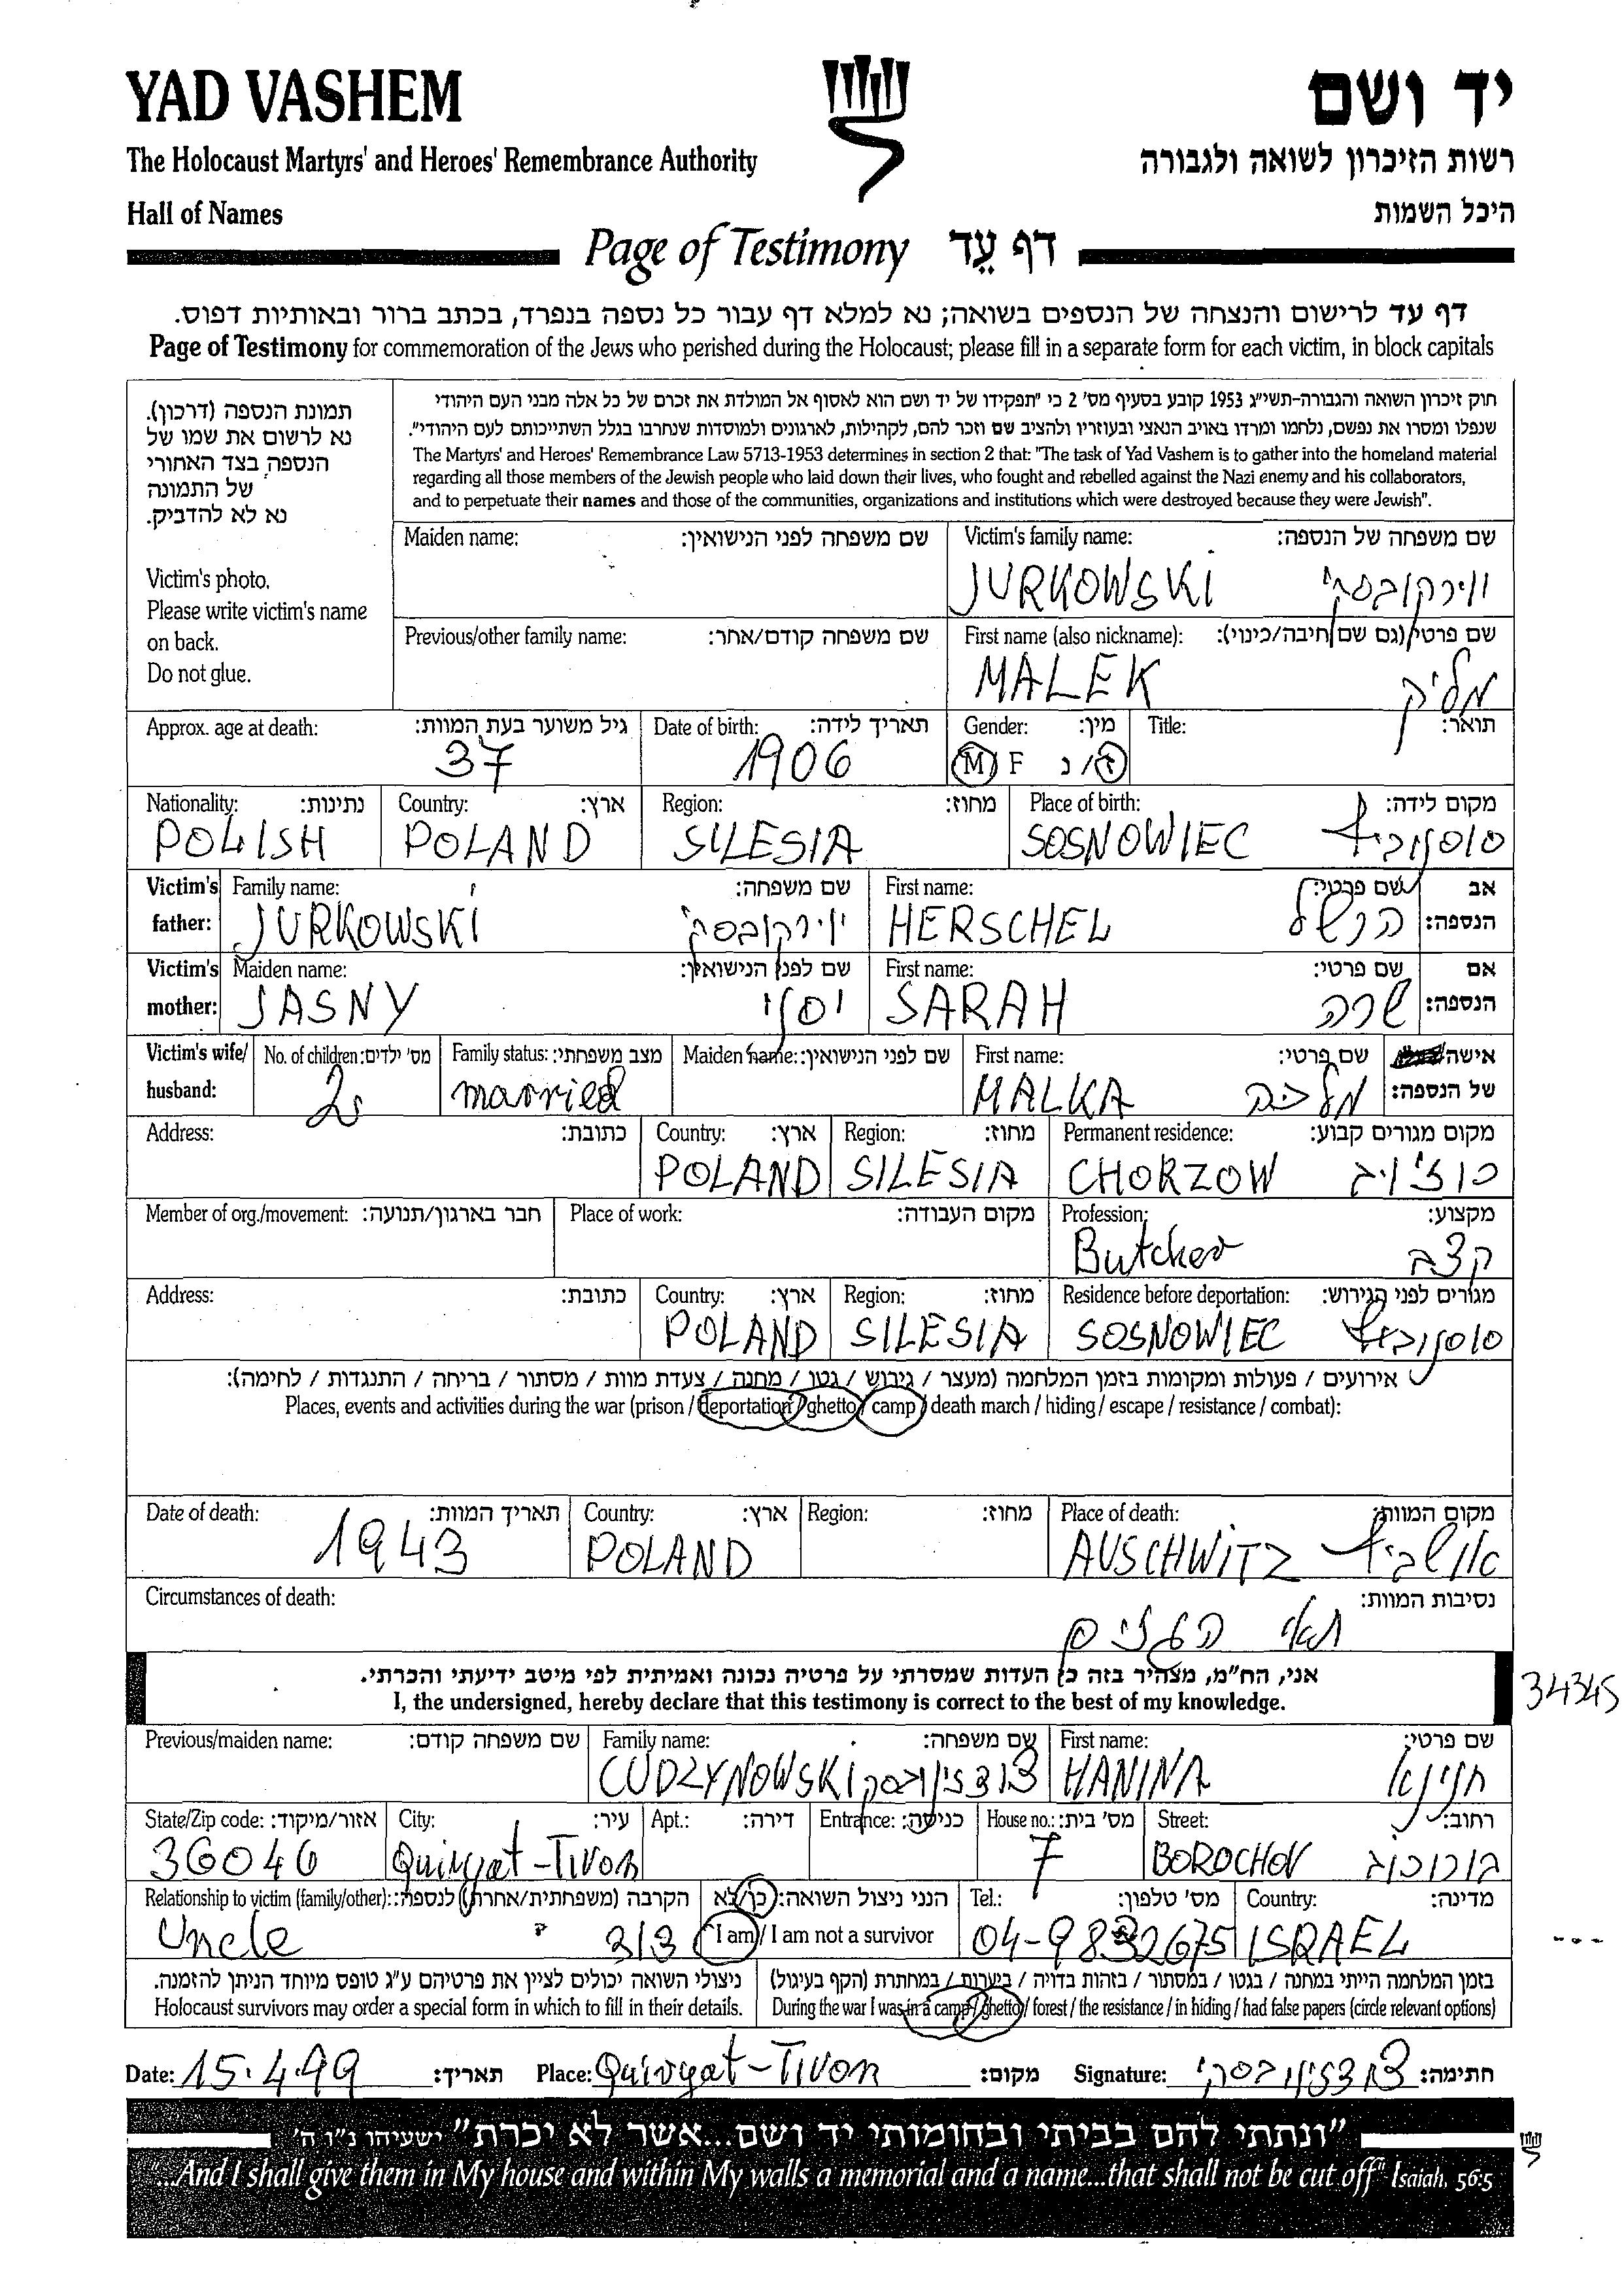 YAD VASHEM
יד ושם
The Holocaust Martyrs' and Heroes' Remembrance Authority
רשות הזיכרון לשואה ולגבורה
Hall of Names
היכל השמות
Page of Testimony דף עֵד
דף עד לרישום והנצחה של הנספים בשואה; נא למלא דף עבור כל נספה בנפרד, בכתב ברור ובאותיות דפוס.
Page of Testimony for commemoration of the Jews who perished during the Holocaust; please fill in a separate form for each victim, in block capitals
תמונת הנספה (דרכון).
נא לרשום את שמו של
הנספה בצד האחורי
של התמונה
נא לא להדביק.
Victim's photo.
Please write victim's name
on back.
Do not glue.
חוק זיכרון השואה והגבורה-תשי״ג 1953 קובע בסעיף מס׳ 2 כי ״תפקידו של יד ושם הוא לאסוף אל המולדת את זכרם של כל אלה מבני העם היהודי
שנפלו ומסרו את נפשם, נלחמו ומרדו באויב הנאצי ובעוזריו ולהציב שם וזכר להם, לקהילות, לארגונים ולמוסדות שנחרבו בגלל השתייכותם לעם היהודי״.
The Martyrs' and Heroes' Remembrance Law 5713-1953 determines in section 2 that: "The task of Yad Vashem is to gather into the homeland material
regarding all those members of the Jewish people who laid down their lives, who fought and rebelled against the Nazi enemy and his collaborators,
and to perpetuate their names and those of the communities, organizations and institutions which were destroyed because they were Jewish".
Maiden name: שם משפחה לפני הנישואין: Victim's family name: שם משפחה של הנספה:
JURKOWSKI יורקובסקי
Previous/other family name: שם משפחה קודם/אחר: First name (also nickname): שם פרטי (גם שם חיבה/כינוי):
MALEK מליק
Approx. age at death: גיל משוער בעת המוות: Date of birth: תאריך לידה: Gender: מין: Title: תואר:
37 1906 M F ז/נ
Nationality: נתינות: Country: ארץ: Region: מחוז: Place of birth: מקום לידה:
POLISH POLAND SILESIA SOSNOWIEC סוסנוביץ
Victim's father: Family name: שם משפחה: First name: שם פרטי: אב הנספה:
JURKOWSKI יורקובסקי HERSCHEL הרשל
Victim's mother: Maiden name: שם לפני הנישואין: First name: שם פרטי: אם הנספה:
JASNY יסני SARAH שרה
Victim's wife/ husband: No. of children: מס׳ ילדים: Family status: מצב משפחתי: Maiden name: שם לפני הנישואין: First name: שם פרטי: אישה של הנספה:
2 married MALKA מלכה
Address: כתובת: Country: ארץ: Region: מחוז: Permanent residence: מקום מגורים קבוע:
POLAND SILESIA CHORZOW
Member of org./movement: חבר בארגון/תנועה: Place of work: מקום העבודה: Profession: מקצוע:
Butcher קצב
Address: כתובת: Country: ארץ: Region: מחוז: Residence before deportation: מגורים לפני הגירוש:
POLAND SILESIA SOSNOWIEC סוסנוביץ
אירועים / פעולות ומקומות בזמן המלחמה (מעצר / גירוש / גטו / מחנה / צעדת מוות / מסתור / בריחה / התנגדות / לחימה):
Places, events and activities during the war (prison / deportation / ghetto / camp / death march / hiding / escape / resistance / combat):
Date of death: תאריך המוות: Country: ארץ: Region: מחוז: Place of death: מקום המוות:
1943 POLAND AUSCHWITZ אושביץ
Circumstances of death: נסיבות המוות:
תאי הגזים
אני, הח״מ, מצהיר בזה כי העדות שמסרתי על פרטיה נכונה ואמיתית לפי מיטב ידיעתי והכרתי.
I, the undersigned, hereby declare that this testimony is correct to the best of my knowledge.
34345
Previous/maiden name: שם משפחה קודם: Family name: שם משפחה: First name: שם פרטי:
CUDZYNOWSKI צודזינובסקי HANINA חנינא
State/Zip code: אזור/מיקוד: City: עיר: Apt.: דירה: Entrance: כניסה: House no.: מס׳ בית: Street: רחוב:
36046 Quiryat-Tivon 7 BOROCHOV בורוכוב
Relationship to victim (family/other): הקרבה (משפחתית/אחרת) לנספה: הנני ניצול השואה: כן/לא Tel.: מס׳ טלפון: Country: מדינה:
Uncle דוד I am / I am not a survivor 04-9832675 ISRAEL
ניצולי השואה יכולים לציין את פרטיהם ע״ג טופס מיוחד הניתן להזמנה.
Holocaust survivors may order a special form in which to fill in their details.
בזמן המלחמה הייתי במחנה / בגטו / במסתור / בזהות בדויה / ביערות / במחתרת (הקף בעיגול)
During the war I was in a camp / ghetto / forest / the resistance / in hiding / had false papers (circle relevant options)
Date: 15.4.99 תאריך: Place: Quiryat-Tivon מקום: Signature: צודזינובסקי חתימה:
״ונתתי להם בביתי ובחומותי יד ושם...אשר לא יכרת״ ישעיהו נ״ו ה׳
"...And I shall give them in My house and within My walls a memorial and a name...that shall not be cut off" Isaiah, 56:5